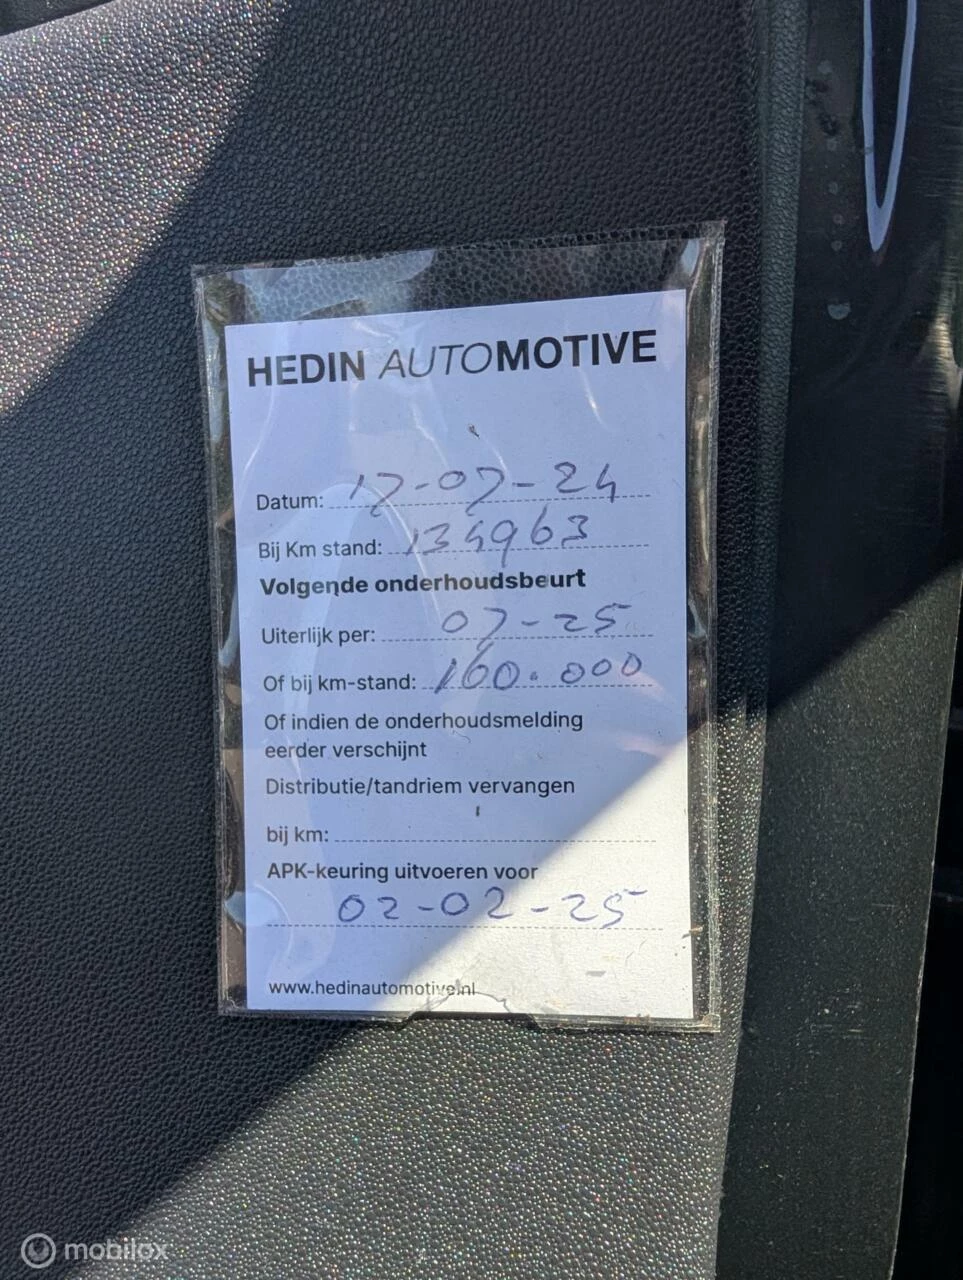 HEDIN AUTOMOTIVE
Datum: 17-07-24
Bij Km stand: 134963
Volgende onderhoudsbeurt
Uiterlijk per: 07-25
Of bij km-stand: 160.000
Of indien de onderhoudsmelding
eerder verschijnt
Distributie/tandriem vervangen
bij km:
APK-keuring uitvoeren voor
02-02-25
www.hedinautomotive.nl
mobilox